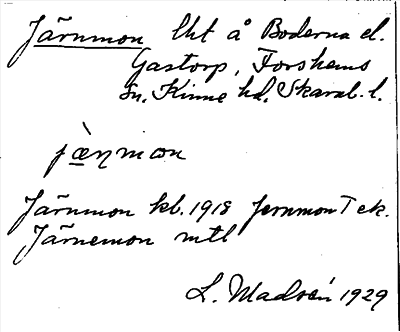 Järnmon lht å Boderna el.
Gastorp, Forshems
sn. Kinne hd. Skarab. l.
jæ̀ηmωn
Järnmon kb. 1918 Jernmon T ek.
Järnemon mtl
L. Madsén 1929